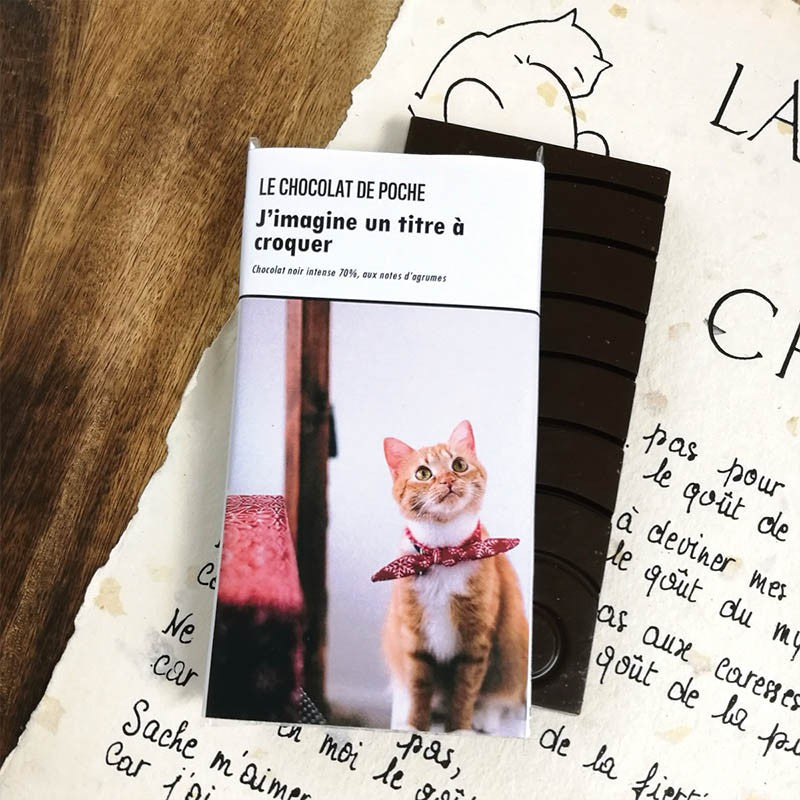 LE CHOCOLAT DE POCHE
J'imagine un titre à
croquer
Chocolat noir intense 70%, aux notes d'agrumes
LA
pas pour
le goût de
à deviner mes
le goût du
as aux caresses
goût de la
Ne
car
en moi le goût
pas,
de la fierté
Sache m'aimer
car j'ai